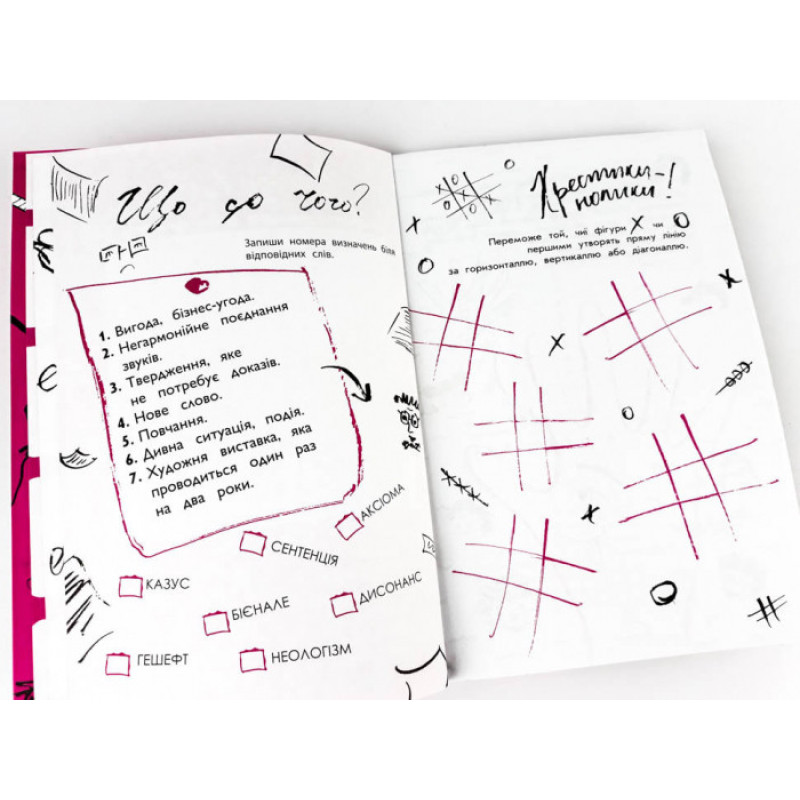 Що до чого?
Запиши номера визначень біля
відповідних слів.
1. Вигода, бізнес-угода.
2. Негармонійне поєднання
звуків.
3. Твердження, яке
не потребує доказів.
4. Нове слово.
5. Повчання.
6. Дивна ситуація, подія.
7. Художня виставка, яка
проводиться один раз
на два роки.
АКСІОМА
СЕНТЕНЦІЯ
КАЗУС
ДИСОНАНС
БІЄНАЛЕ
ГЕШЕФТ
НЕОЛОГІЗМ
Хрестики-
нолики!
Переможе той, чиї фігури X чи O
першими утворять пряму лінію
за горизонталлю, вертикаллю або діагоналлю.